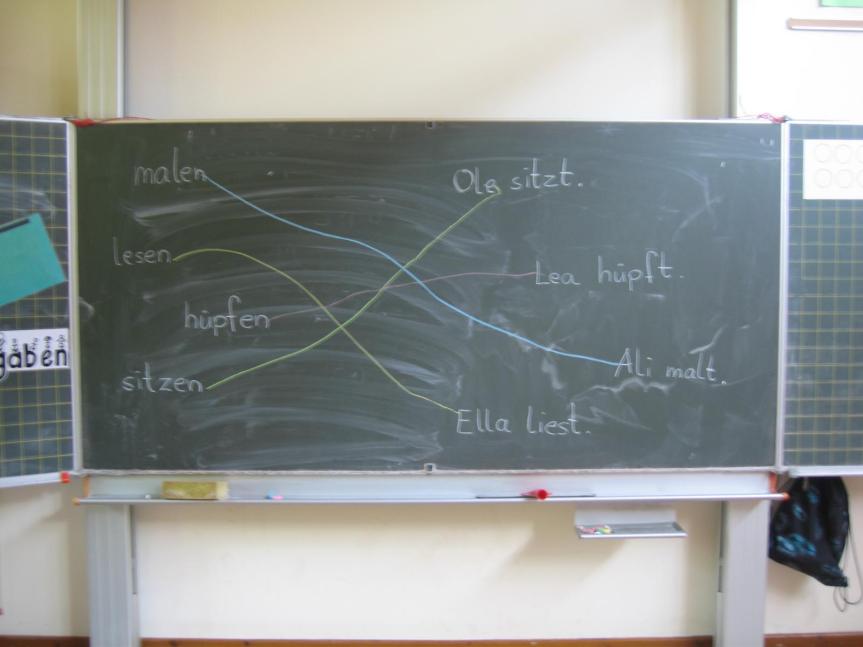 malen
lesen
hüpfen
sitzen
Ole sitzt.
Lea hüpft.
Ali malt.
Ella liest.
gaben